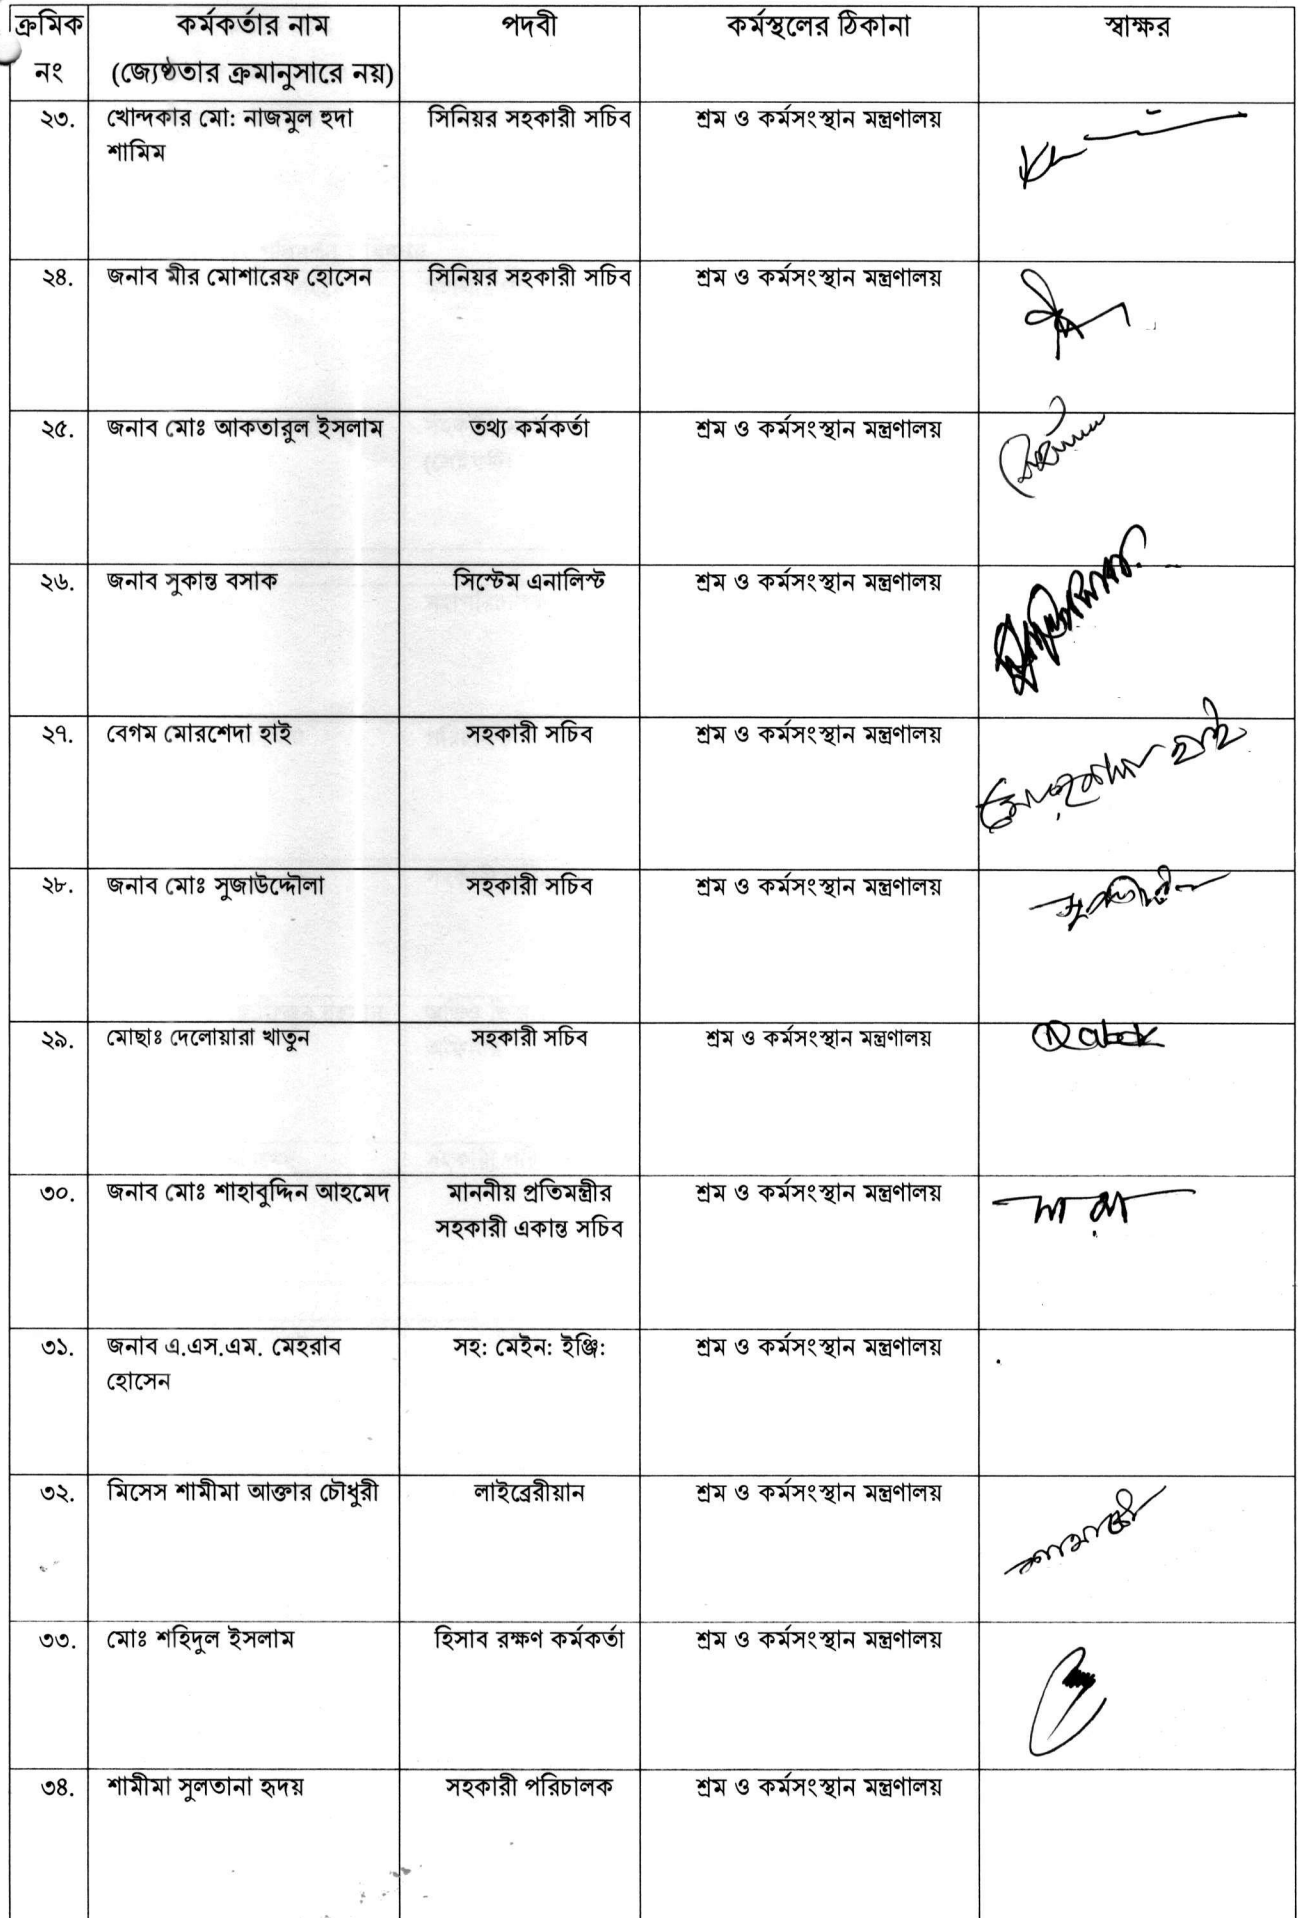 ক্রমিক নং কর্মকর্তার নাম (জ্যেষ্ঠতার ক্রমানুসারে নয়) পদবী কর্মস্থলের ঠিকানা স্বাক্ষর
২৩. খোন্দকার মো: নাজমুল হুদা সিনিয়র সহকারী সচিব শ্রম ও কর্মসংস্থান মন্ত্রণালয়
শামিম
২৪. জনাব মীর মোশারেফ হোসেন সিনিয়র সহকারী সচিব শ্রম ও কর্মসংস্থান মন্ত্রণালয়
২৫. জনাব মোঃ আকতারুল ইসলাম তথ্য কর্মকর্তা শ্রম ও কর্মসংস্থান মন্ত্রণালয়
২৬. জনাব সুকান্ত বসাক সিস্টেম এনালিস্ট শ্রম ও কর্মসংস্থান মন্ত্রণালয়
২৭. বেগম মোরশেদা হাই সহকারী সচিব শ্রম ও কর্মসংস্থান মন্ত্রণালয়
২৮. জনাব মোঃ সুজাউদ্দৌলা সহকারী সচিব শ্রম ও কর্মসংস্থান মন্ত্রণালয়
২৯. মোছাঃ দেলোয়ারা খাতুন সহকারী সচিব শ্রম ও কর্মসংস্থান মন্ত্রণালয়
৩০. জনাব মোঃ শাহাবুদ্দিন আহমেদ মাননীয় প্রতিমন্ত্রীর শ্রম ও কর্মসংস্থান মন্ত্রণালয়
সহকারী একান্ত সচিব
৩১. জনাব এ.এস.এম. মেহরাব সহ: মেইন: ইঞ্জি: শ্রম ও কর্মসংস্থান মন্ত্রণালয়
হোসেন
৩২. মিসেস শামীমা আক্তার চৌধুরী লাইব্রেরীয়ান শ্রম ও কর্মসংস্থান মন্ত্রণালয়
৩৩. মোঃ শহিদুল ইসলাম হিসাব রক্ষণ কর্মকর্তা শ্রম ও কর্মসংস্থান মন্ত্রণালয়
৩৪. শামীমা সুলতানা হৃদয় সহকারী পরিচালক শ্রম ও কর্মসংস্থান মন্ত্রণালয়